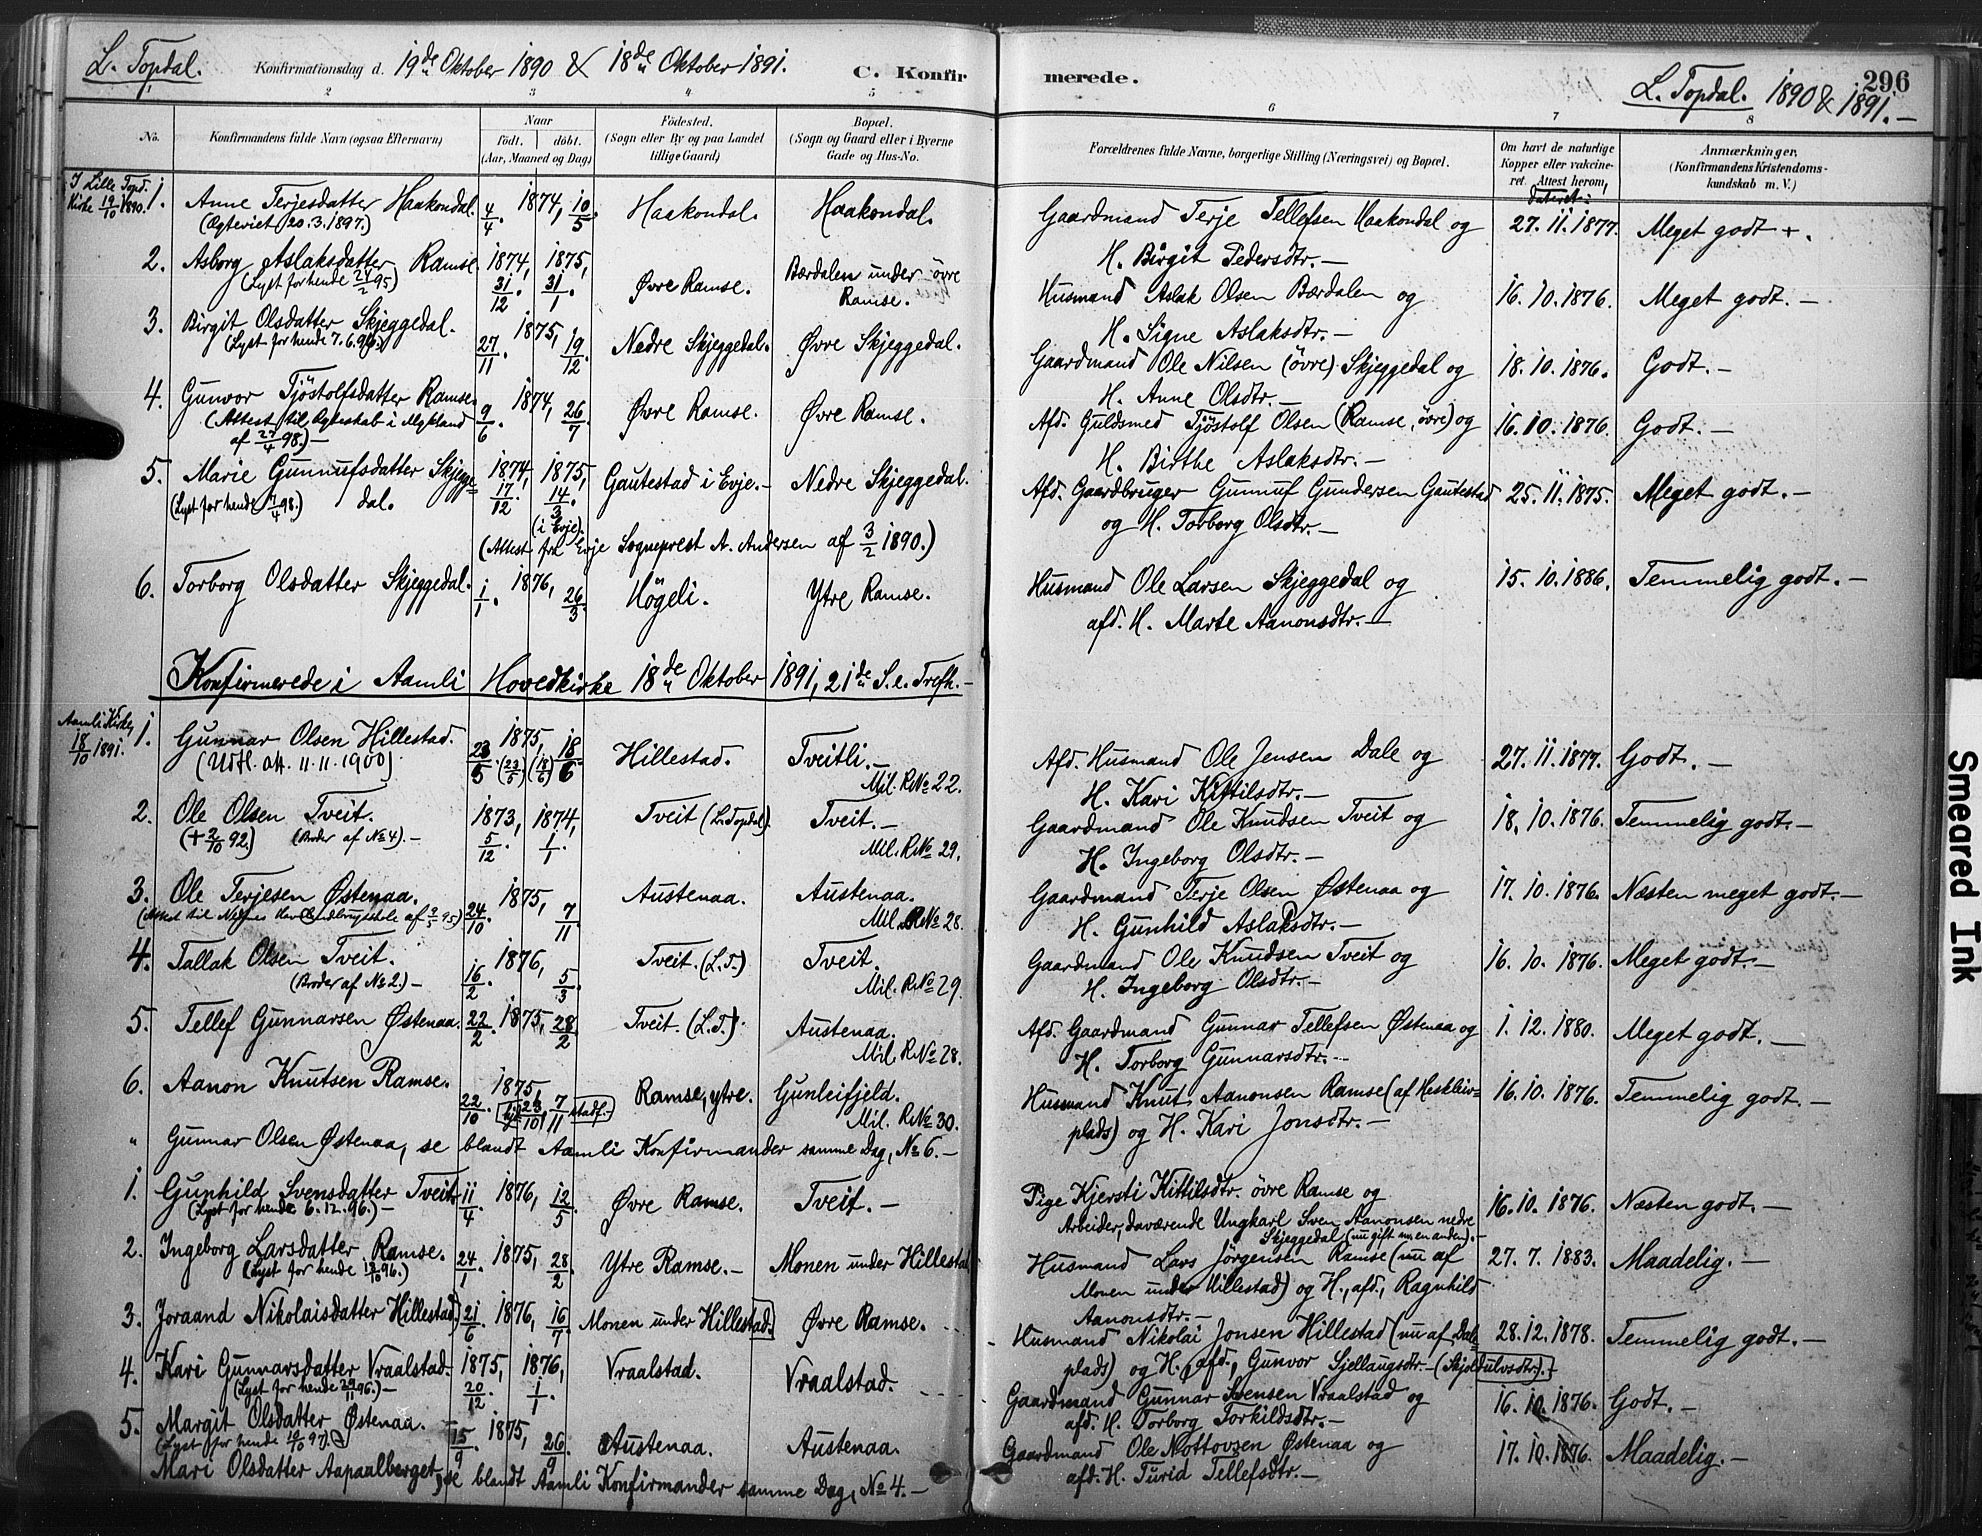 L. Topdal. Konfirmationsdag d. 19de Oktober 1890 & 18de Oktober 1891. C. Konfir merede. L. Topdal. 1890 & 1891.— 296
1 2 3 4 5 6 7 8
No. Konfirmandens fulde Navn (ogsaa Efternavn) Naar født. døbt. (Aar, Maaned og Dag) Fødested. (Sogn eller By og paa Landet tillige Gaard) Bopæl. (Sogn og Gaard eller i Byerne Gade og Hus-No. Forældrenes fulde Navne, borgerlige Stilling (Næringsvei) og Bopæl. Om havt de naturlige Kopper eller vakcineret. Attest herom, dateret: Anmærkninger, (Konfirmandens Kristendomskundskab m. V.)
I Lille Topd. Kirke 19/10 1890. 1. Anne Terjesdatter Haakondal. 4/4. 1874, 10/5. Haakondal. Haakondal. Gaardmand Terje Tellefsen Haakondal og 27.11.1877. Meget godt +.
(Ægteviet 20.3.1897.) H. Birgit Pedersdtr.—
2. Asborg Aslaksdatter Ramse. 1874, 31/12. 1875, 31/1. Øvre Ramse. Bærdalen under øvre Ramse. Husmand Aslak Olsen Bærdalen og 16.10.1876. Meget godt.—
(Lyst for hende 24/2 95) H. Signe Aslaksdtr.—
3. Birgit Olsdatter Skjeggedal. 27/11. 1875, 19/12. Nedre Skjeggedal. Øvre Skjeggedal. Gaardmand Ole Nilsen (övre) Skjeggedal og 18.10.1876. Godt.—
(Lyst for hende 7.6.96.) H. Anne Olsdtr.—
4. Gunvor Tjöstolfsdatter Ramse. 9/6. 1874, 26/7. Øvre Ramse. Øvre Ramse. Afd. Guldsmed Tjöstolf Olsen (Ramse, övre) og 16.10.1876. Godt.—
(Attest til Ægteskab i Mykland af 27/4 98.)— H. Birthe Aslaksdtr.—
5. Marie Gunnufsdatter Skjeggedal. 1874, 17/12. 1875, 14/3. (i Evje). Gautestad i Evje.— Nedre Skjeggedal. Afd. Gaardbruger Gunnuf Gundersen Gautestad 25.11.1875. Meget godt.—
(Lyst for hende 17/4 98.) og H. Torborg Olsdtr.—
(Attest fra Evje Sogneprest A. Andersen af 3/2 1890.)
6. Torborg Olsdatter Skjeggedal. 1/1. 1876, 26/3. Högeli. Ytre Ramse. Husmand Ole Larsen Skjeggedal og 15.10.1886. Temmelig godt.—
afd. H. Marte Aanonsdtr.—
Konfirmerede i Aamli Hovedkirke 18de Oktober 1891, 21de S. e. Trefh.—
Aamli Kirke, 18/10 1891. 1. Gunnar Olsen Hillestad. 23/5. (23/5) 1875, (18/6) 18/6. Hillestad. Tveitli.— Afd. Husmand Ole Jensen Dale og 27.11.1877. Godt.—
(Udfl. att. 11.11.1900) Mil. R. No 22. H. Kari Kittilsdtr.—
2. Ole Olsen Tveit. 1873, 5/12. 1874, 1/1. Tveit (L. Topdal). Tveit.— Gaardmand Ole Knudsen Tveit og 18.10.1876. Temmelig godt.—
(+ 2/10 92.) (Broder af No 4).— Mil. R. No 29. H. Ingeborg Olsdtr.—
3. Ole Terjesen Østenaa. 24/10. 1875, 7/11. Austenaa. Austenaa. Gaardmand Terje Olsen Østenaa og 17.10.1876. Næsten meget godt.—
Mil. R. No 28. H. Gunhild Aslaksdtr.—
4. Tallak Olsen Tveit. 16/2. 1876, 5/3. Tveit. (L. T.) Tveit. Gaardmand Ole Knudsen Tveit og 16.10.1876. Meget godt.—
(Broder af No 2.)— Mil. R. No 29. H. Ingeborg Olsdtr.—
5. Tellef Gunnarsen Østenaa. 22/2. 1875, 28/2. Tveit. (L. T.) Austenaa. Afd. Gaardmand Gunnar Tellefsen Østenaa og 1.12.1880. Meget godt.—
Mil. R. No 28. H. Torborg Gunnarsdtr.—
6. Aanon Knutsen Ramse. 22/10. 1875, 7/11 stadf. Ramse, ytre. Gunleifjeld. Husmand Knut Aanonsen Ramse (af 16.10.1876. Temmelig godt.—
Mil. R. No 30. plads) og H. Kari Jonsdtr.—
" Gunnar Olsen Østenaa, se blandt Aamli Konfirmander samme Dag, No 6.—
1. Gunhild Svensdatter Tveit. 11/4. 1876, 12/5. Øvre Ramse. Tveit.— Pige Kjersti Kittilsdtr. övre Ramse og 16.10.1876. Næsten godt.—
(Lyst for hende 6.12.96.)— Arbeider, daværende Ungkarl Sven Aanonsen nedre Skjeggedal (nu gift m. en anden).—
2. Ingeborg Larsdatter Ramse. 24/1. 1875, 28/2. Ytre Ramse.— Monen under Hillestad Husmand Lars Jörgensen Ramse (nu af 27.7.1883. Maadelig.—
(Lyst for hende 18/10 96.) Monen under Hillestad) og H., afd., Ragnhild Aanonsdtr.—
3. Joraand Nikolaisdatter Hillestad. 21/6. 1876, 16/7. Monen under Hillestad. Øvre Ramse. Husmand Nikolai Jonsen Hillestad (nu af Dale 28.12.1878. Temmelig godt.—
plads) og H., afd., Gunvor Sjellaugsdtr.— (Skjoldulvsdtr.).—
4. Kari Gunnarsdatter Vraalstad. 1875, 20/12. 1876, 1/1. Vraalstad. Vraalstad. Gaardmand Gunnar Svensen Vraalstad og 16.10.1876. Godt.—
(Lyst for hende 29/11 96.)— afd. H. Torborg Torkildsdtr.—
5. Margit Olsdatter Østenaa. 15/9. 1875, 26/9. Austenaa. Austenaa. Gaardmand Ole Nottovsen Østenaa og 17.10.1876. Maadelig.—
(Lyst for hende 10/10 97.) afd. H. Turid Tellefsdtr.—
Mari Olsdatter Aapaalberget, se blandt Aamli Konfirmander samme Dag, No 4.—
Smeared Ink